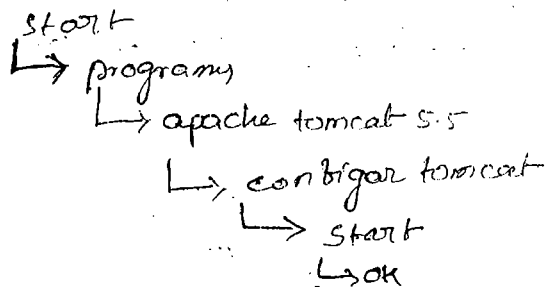 start
↳ programs
↳ apache tomcat 5.5
↳ configar tomcat
↳ start
↳ OK